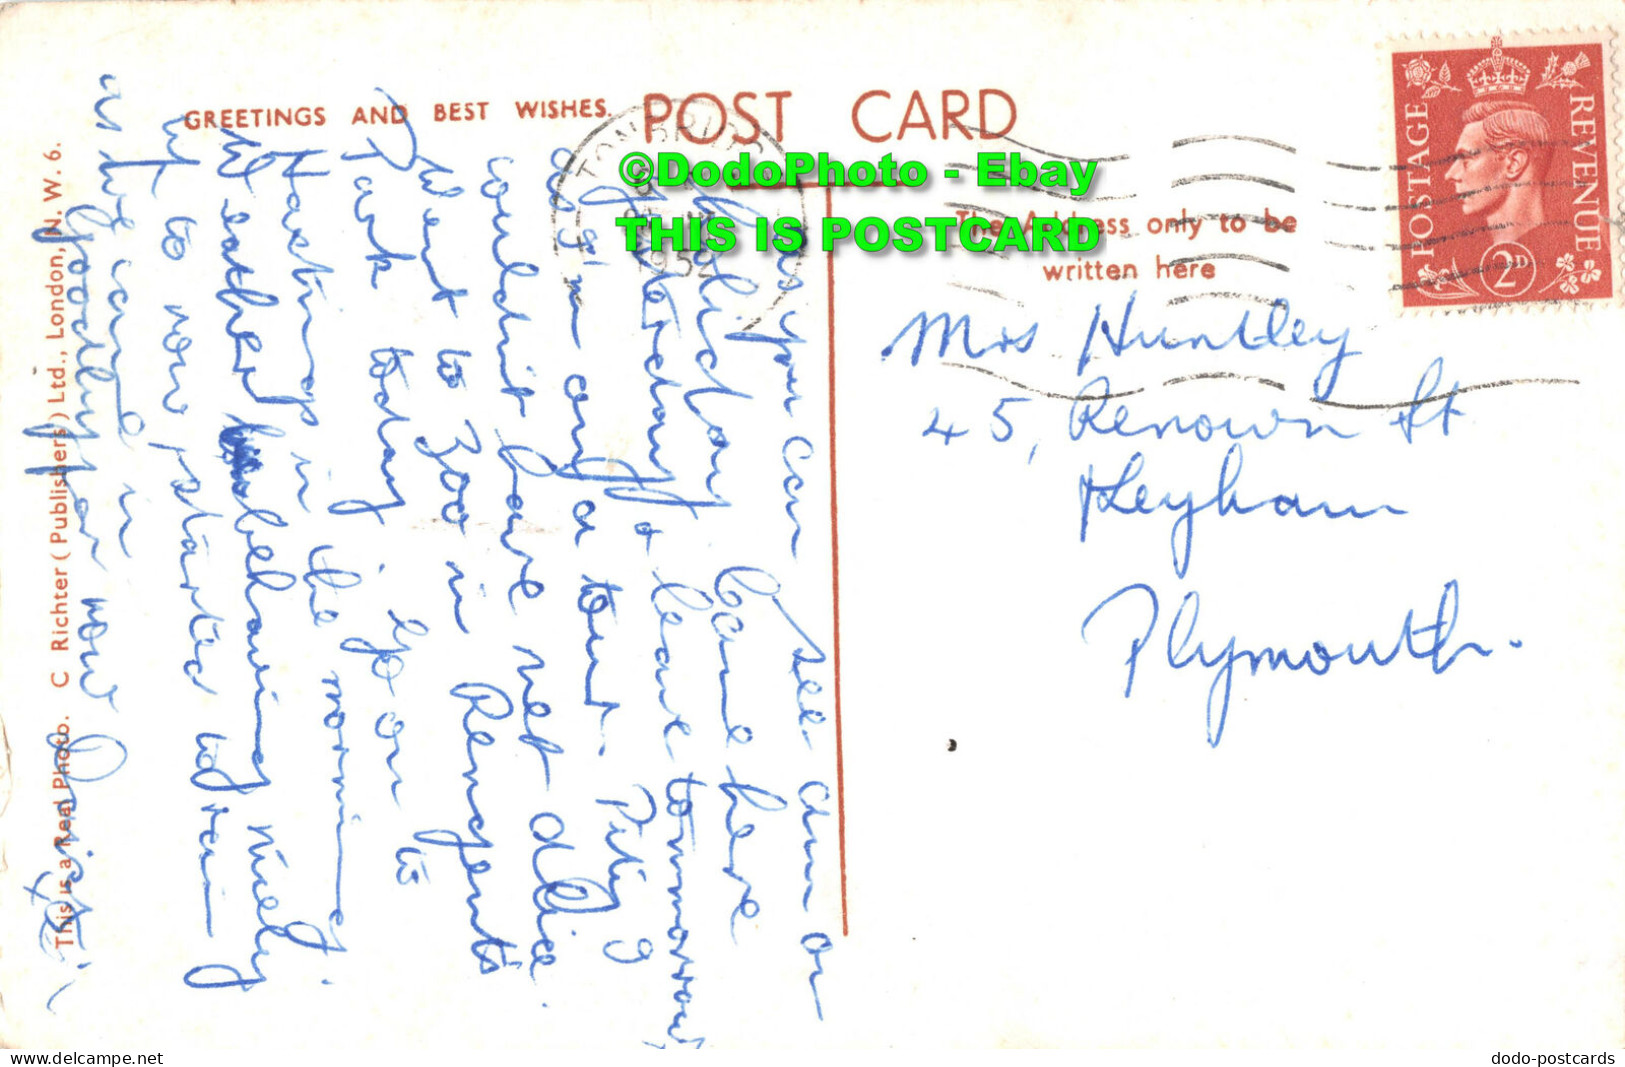 GREETINGS AND BEST WISHES.
POST CARD
©DodoPhoto - Ebay
THIS IS POSTCARD
The Address only to be
written here
POSTAGE
REVENUE
2D
Mrs Huntley
45, Renown St
Keyham
Plymouth.
As you can see am on
holiday came here
yesterday & leave tommorow
as I'm on a tour. Pity I
couldnt have met Alice.
Went to Zoo in Regents
Park today. Go on to
Hastings in the morning.
Weather behaving nicely
up to now started to rain
as we came in
Goodbye for now
This is a Real Photo. C Richter (Publishers) Ltd., London, N. W. 6.
delcampe.net
dodo-postcards